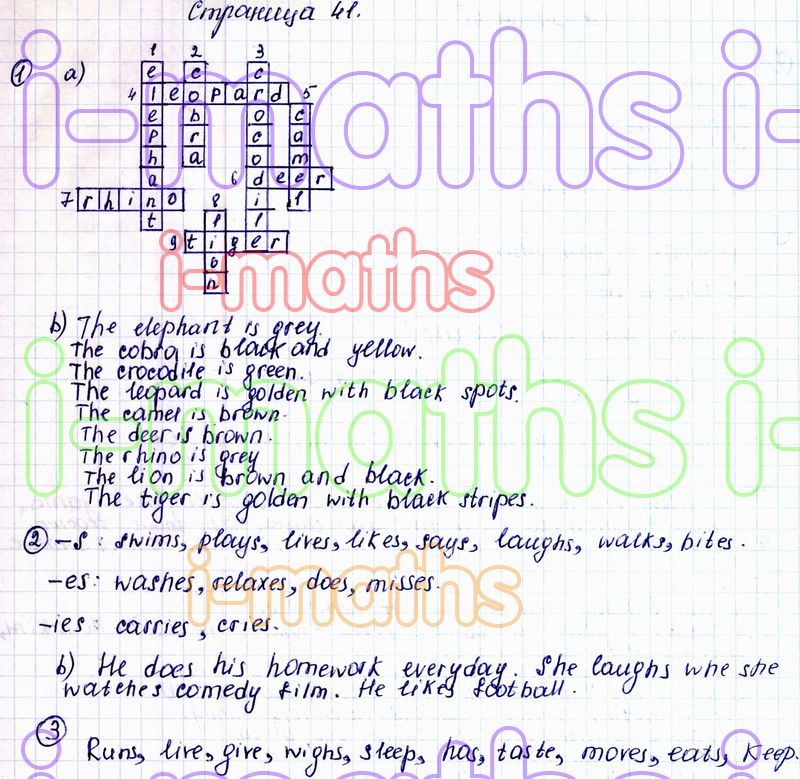 Страница 41.
1 a)
1 elephant
2 cobra
3 crocodile
4 leopard
5 camel
6 deer
7 rhino
8 lion
9 tiger
b) The elephant is grey.
The cobra is black and yellow.
The crocodile is green.
The leopard is golden with black spots.
The camel is brown.
The deer is brown.
The rhino is grey
The lion is brown and black.
The tiger is golden with black stripes.
2 -s: swims, plays, lives, likes, says, laughs, walks, bites.
-es: washes, relaxes, does, misses.
-ies: carries, cries.
b) He does his homework everyday. She laughs whe she
watches comedy film. He likes football.
3
Runs, live, give, wighs, sleep, has, taste, moves, eats, keep.
i-maths i-maths
i-maths
i-maths i-maths
i-maths
i-maths